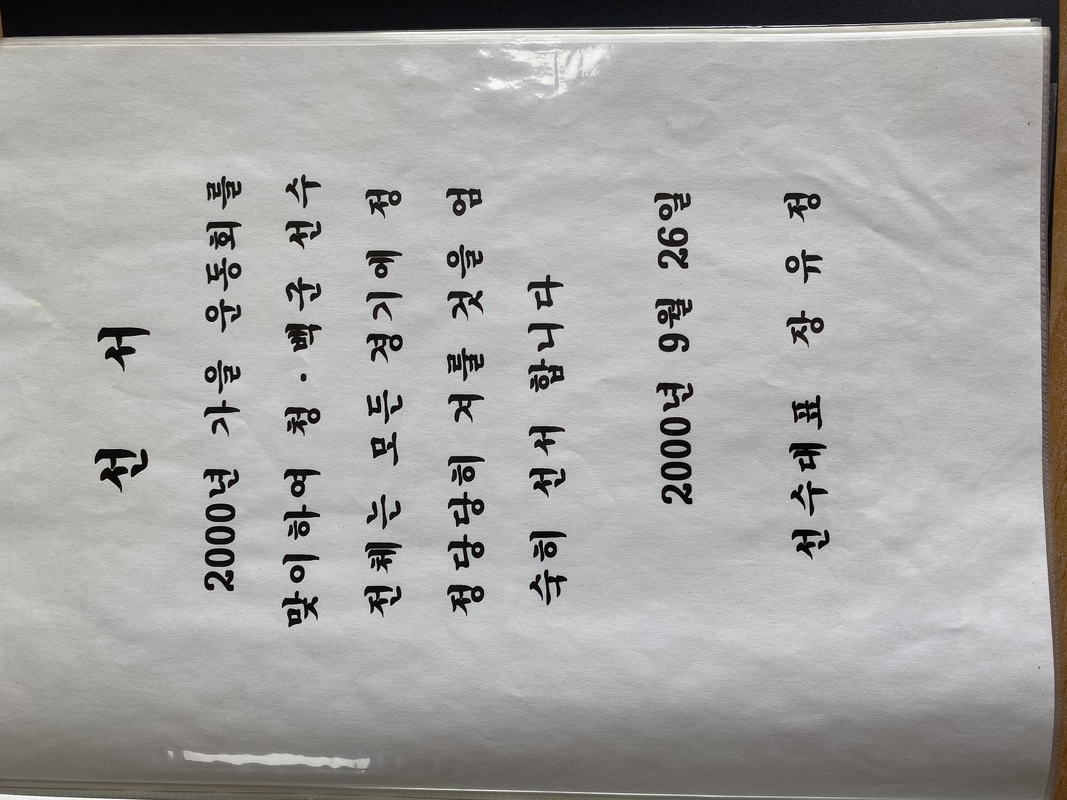 선 서
2000년 가을 운동회를
맞이하여 청·백군 선수
전체는 모든 경기에 정
정당당히 겨룰 것을 엄
숙히 선서 합니다
2000년 9월 26일
선수대표 장 유 정